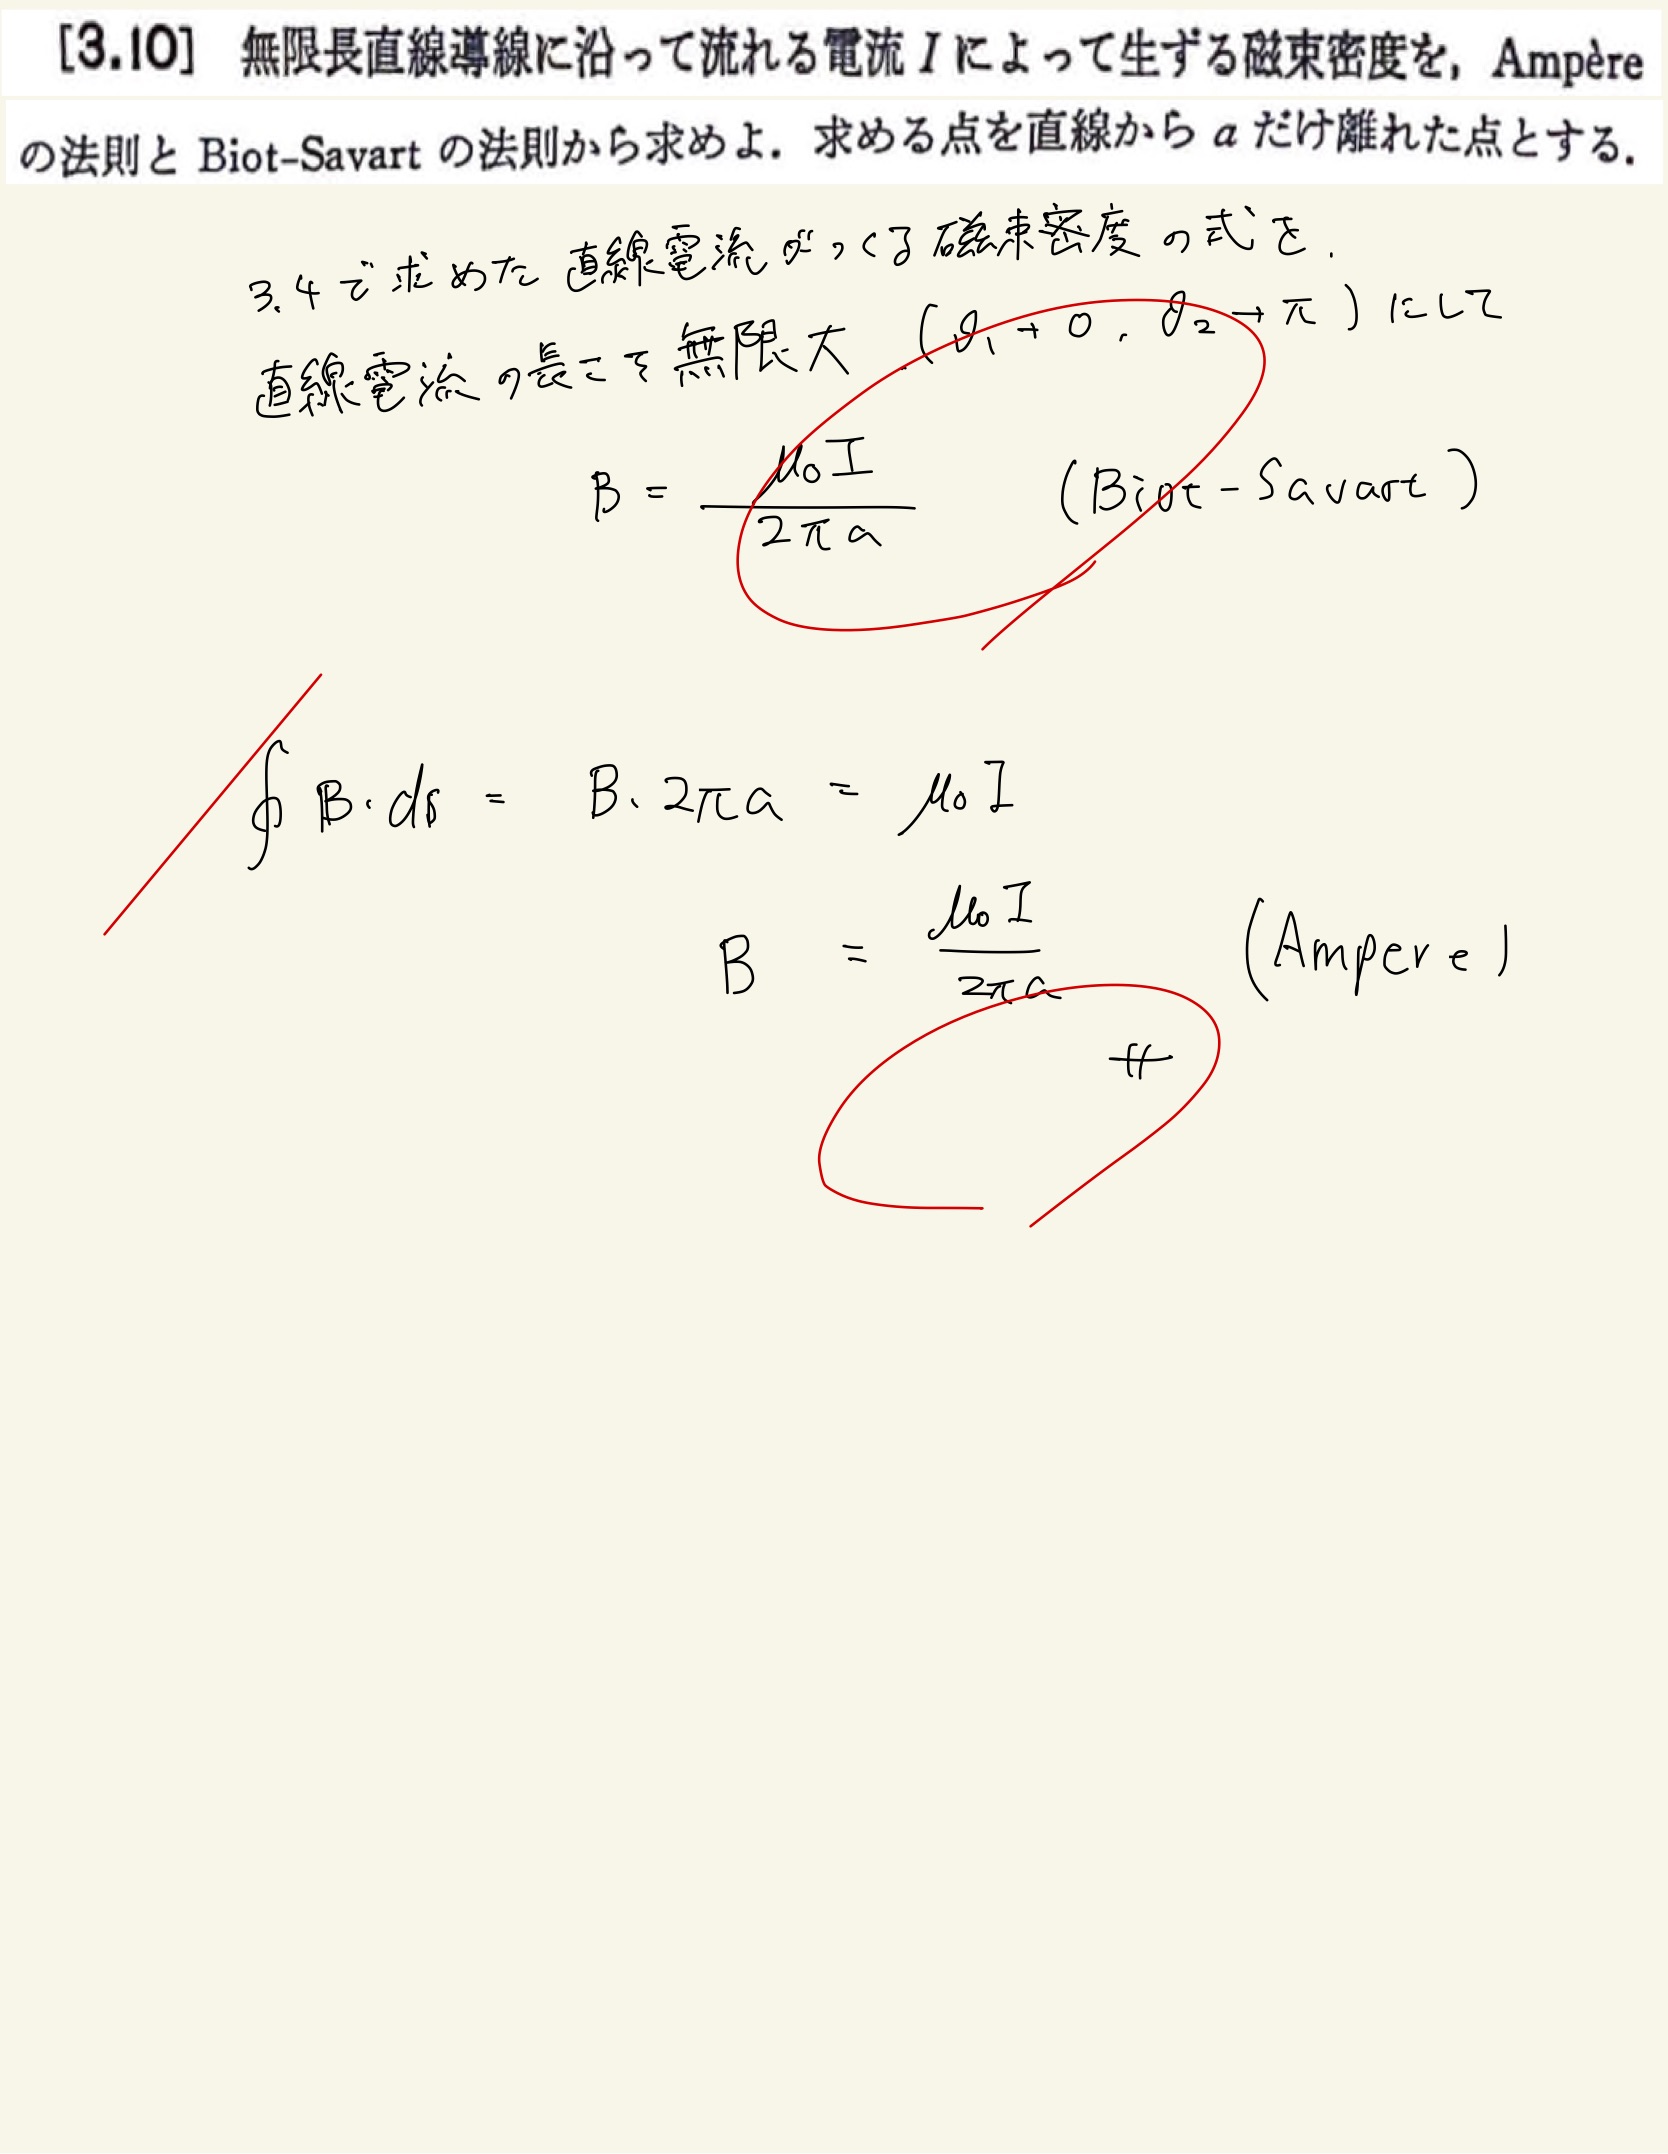 [3.10] 無限長直線導線に沿って流れる電流 I によって生ずる磁束密度を, Ampère
の法則と Biot-Savart の法則から求めよ. 求める点を直線から a だけ離れた点とする.
3.4で求めた直線電流がつくる磁束密度の式を.
直線電流の長さを無限大 (θ₁→0, θ₂→π) にして
B = μ₀I / 2πa (Biot-Savart)
∮ B·ds = B·2πa = μ₀I
B = μ₀I / 2πa (Ampere)